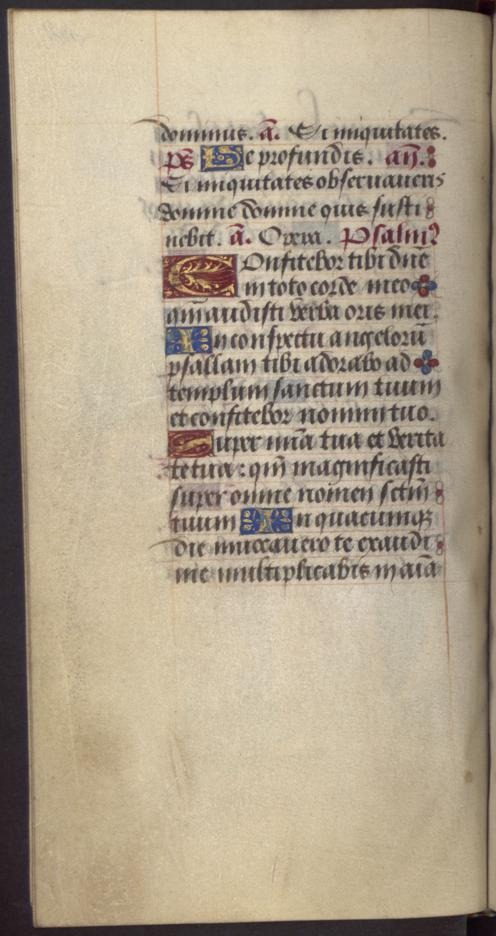 dominus. a. Si iniquitates.
ps De profundis. añ.
Si iniquitates obseruaueris
domine domine quis susti
nebit. a. Opera. Psalm9
Onfitebor tibi dñe
in toto corde meo
qm̃ audisti verba oris mei.
In conspectu angelorũ
psallam tibi adorabo ad
templum sanctum tuum
et confitebor nomini tuo.
Super mĩa tua et verita
te tua: qm̃ magnificasti
super omne nomen sctm̃
tuum In quacumqz
die inuocauero te exaudi
me multiplicabis in aĩa